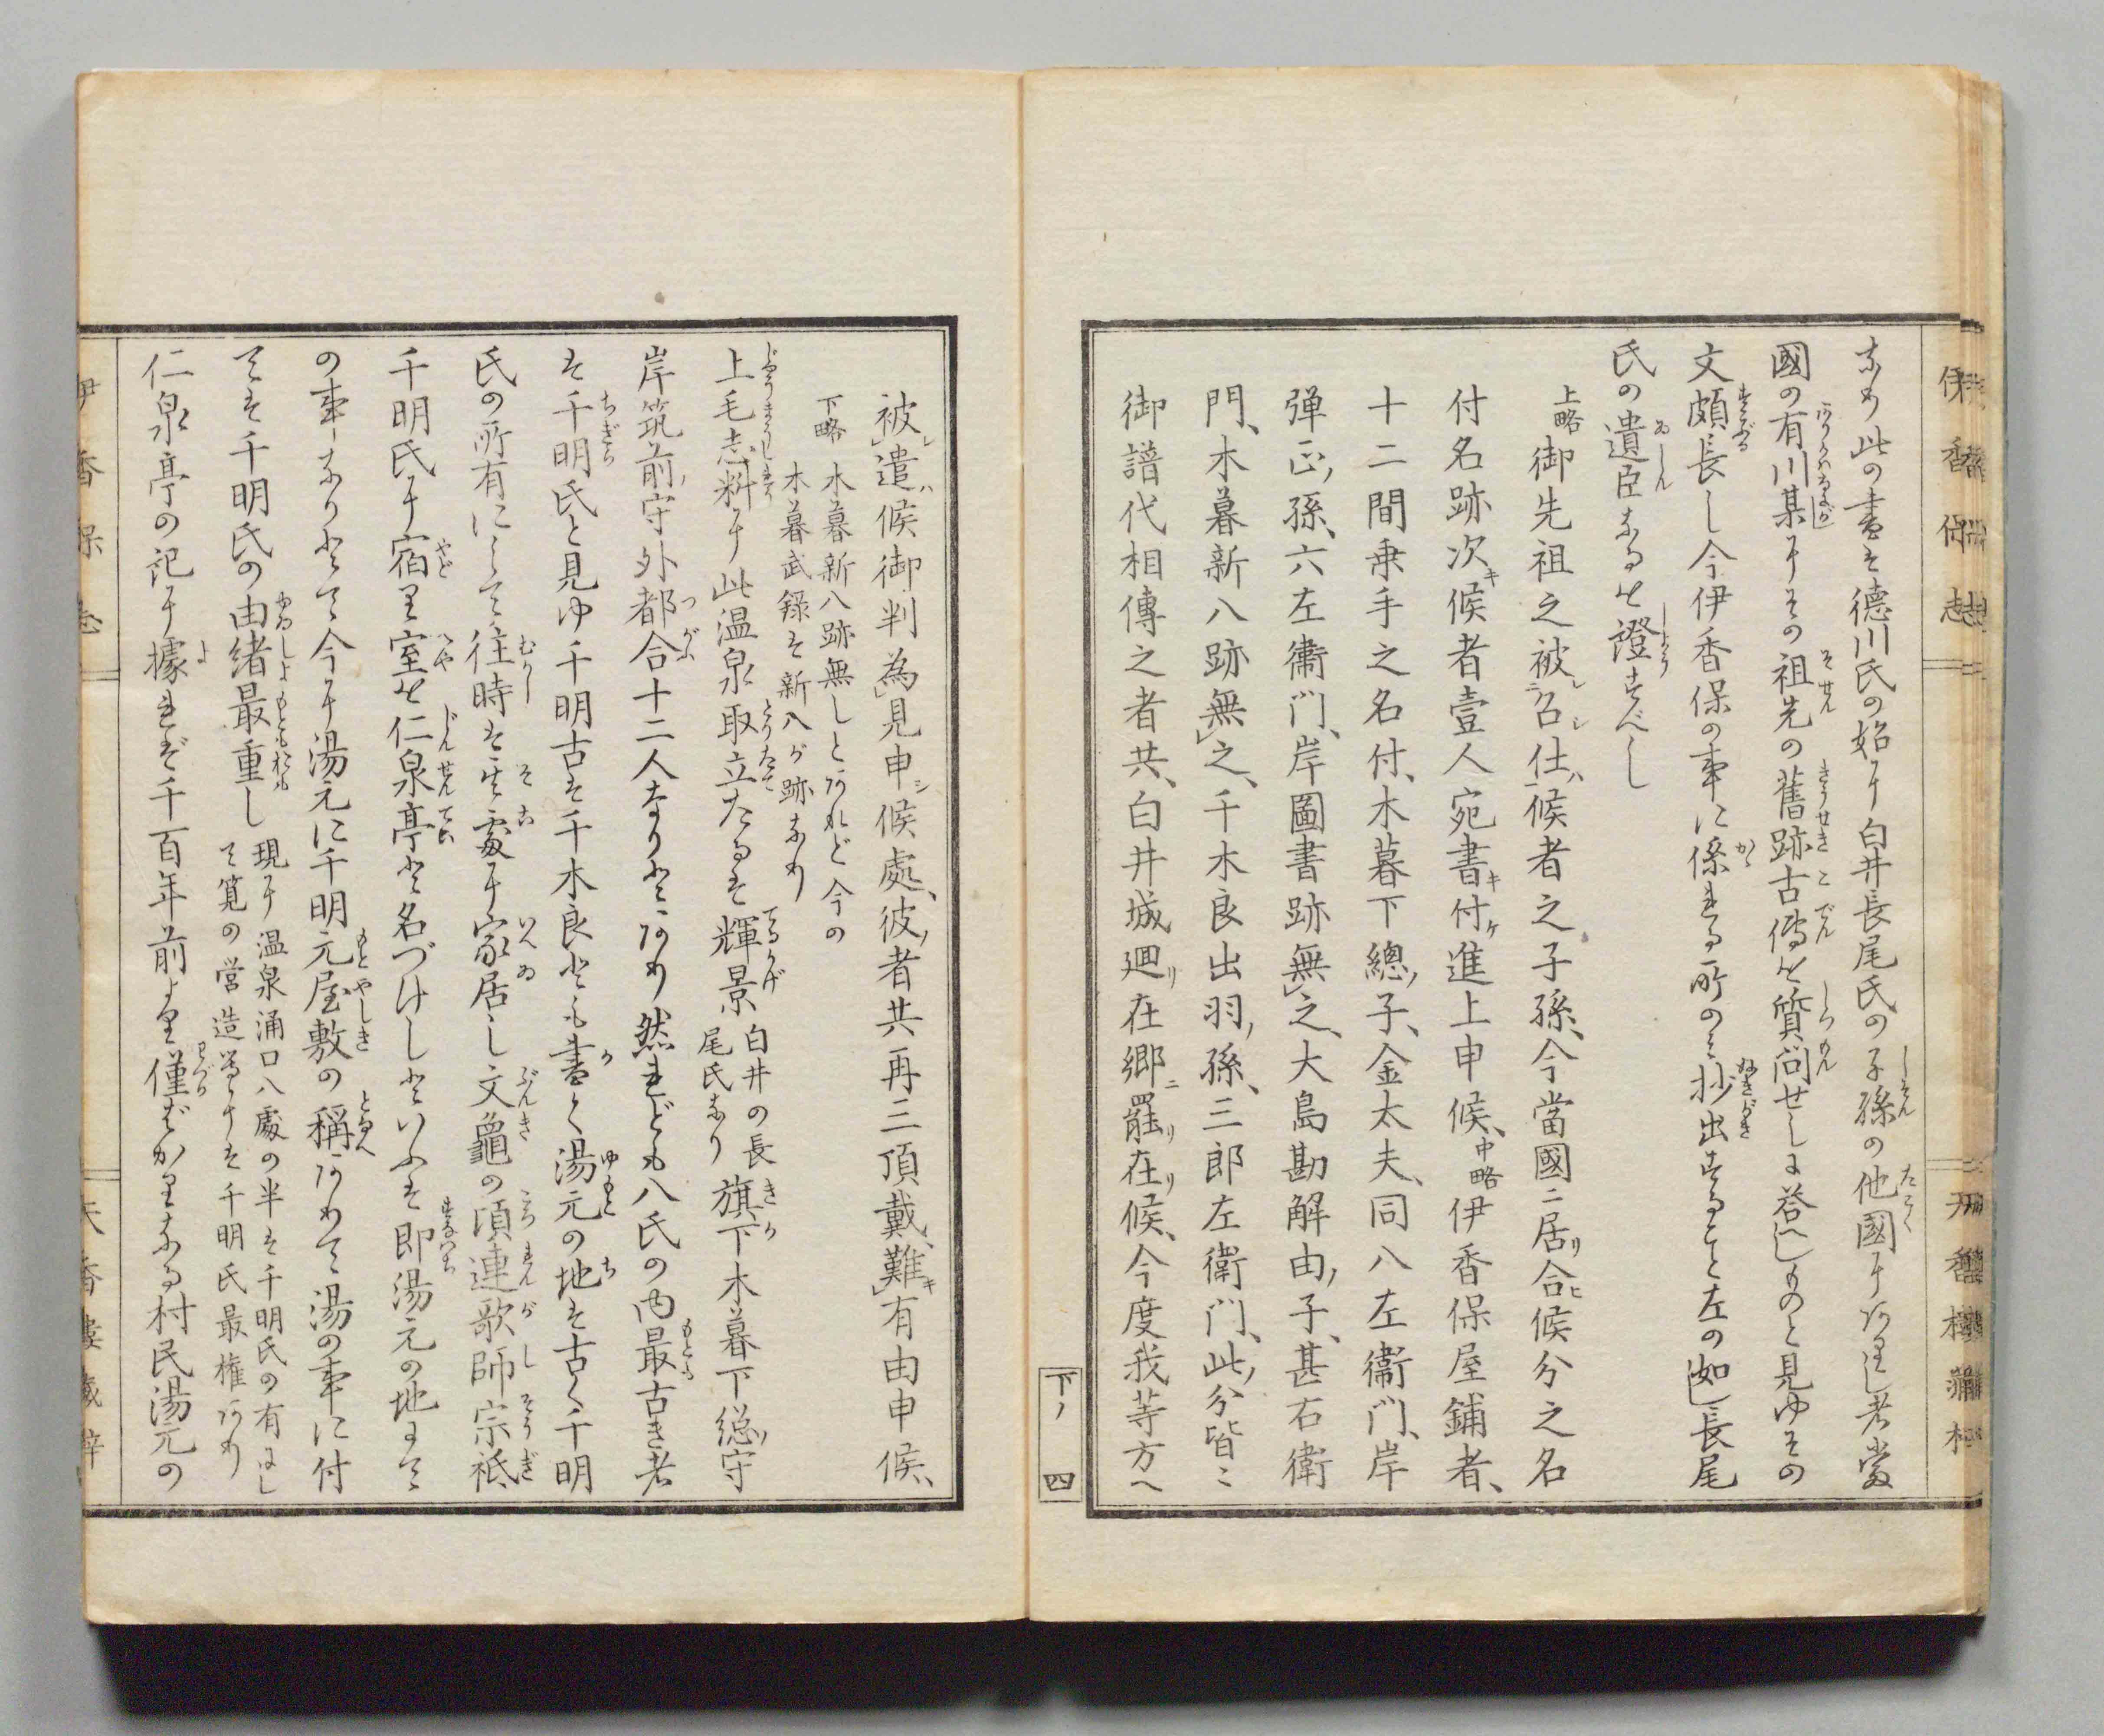 なり此の書は德川氏の始に白井長尾氏の子孫の他國にありし者當
國の有川某にその祖先の舊跡古傳を質問せしに答へしものと見ゆその
文頗長し今伊香保の事に係れる所のみ抄出すること左の如し長尾
氏の遺臣なるを證すべし
上略御先祖之被召仕候者之子孫、今當國ニ居リ合ヒ候分之名
付名跡次キ候者壹人宛書キ付ケ進上申候、中略伊香保屋鋪者、
十二間乗手之名付、木暮下總ノ子、金太夫、同八左衞門、岸
弾正ノ孫、六左衞門、岸圖書跡無之、大島勘解由ノ子、甚右衞
門、木暮新八跡無之、千木良出羽ノ孫、三郎左衞門、此ノ分皆ミ
御譜代相傳之者共、白井城廻リ在郷ニ罷リ在リ候、今度我等方へ
下ノ 四
被遣候御判為見申シ候處、彼ノ者共再三頂戴、難キ有由申候、
下略 木暮新八跡無しとあれど今の
木暮武錄は新八が跡なり
上毛志料に此温泉取立たるは輝景 白井の長
尾氏なり 旗下木暮下総ノ守
岸筑前ノ守外都合十二人なりとあり然れども八氏の内最古き者
は千明氏と見ゆ千明古は千木良とも書く湯元の地は古く千明
氏の所有にして往時は其處に家居し文龜の頃連歌師宗祇
千明氏に宿り室を仁泉亭と名づけしといふは即湯元の地にて
の事なりとて今に湯元に千明元屋敷の稱ありて湯の事に付
ては千明氏の由緒最重し 現に温泉涌口八處の半は千明氏の有にし
て筧の営造等には千明氏最権あり
仁泉亭の記に據れば千百年前より僅ばかりなる村民湯元の
伊香保志